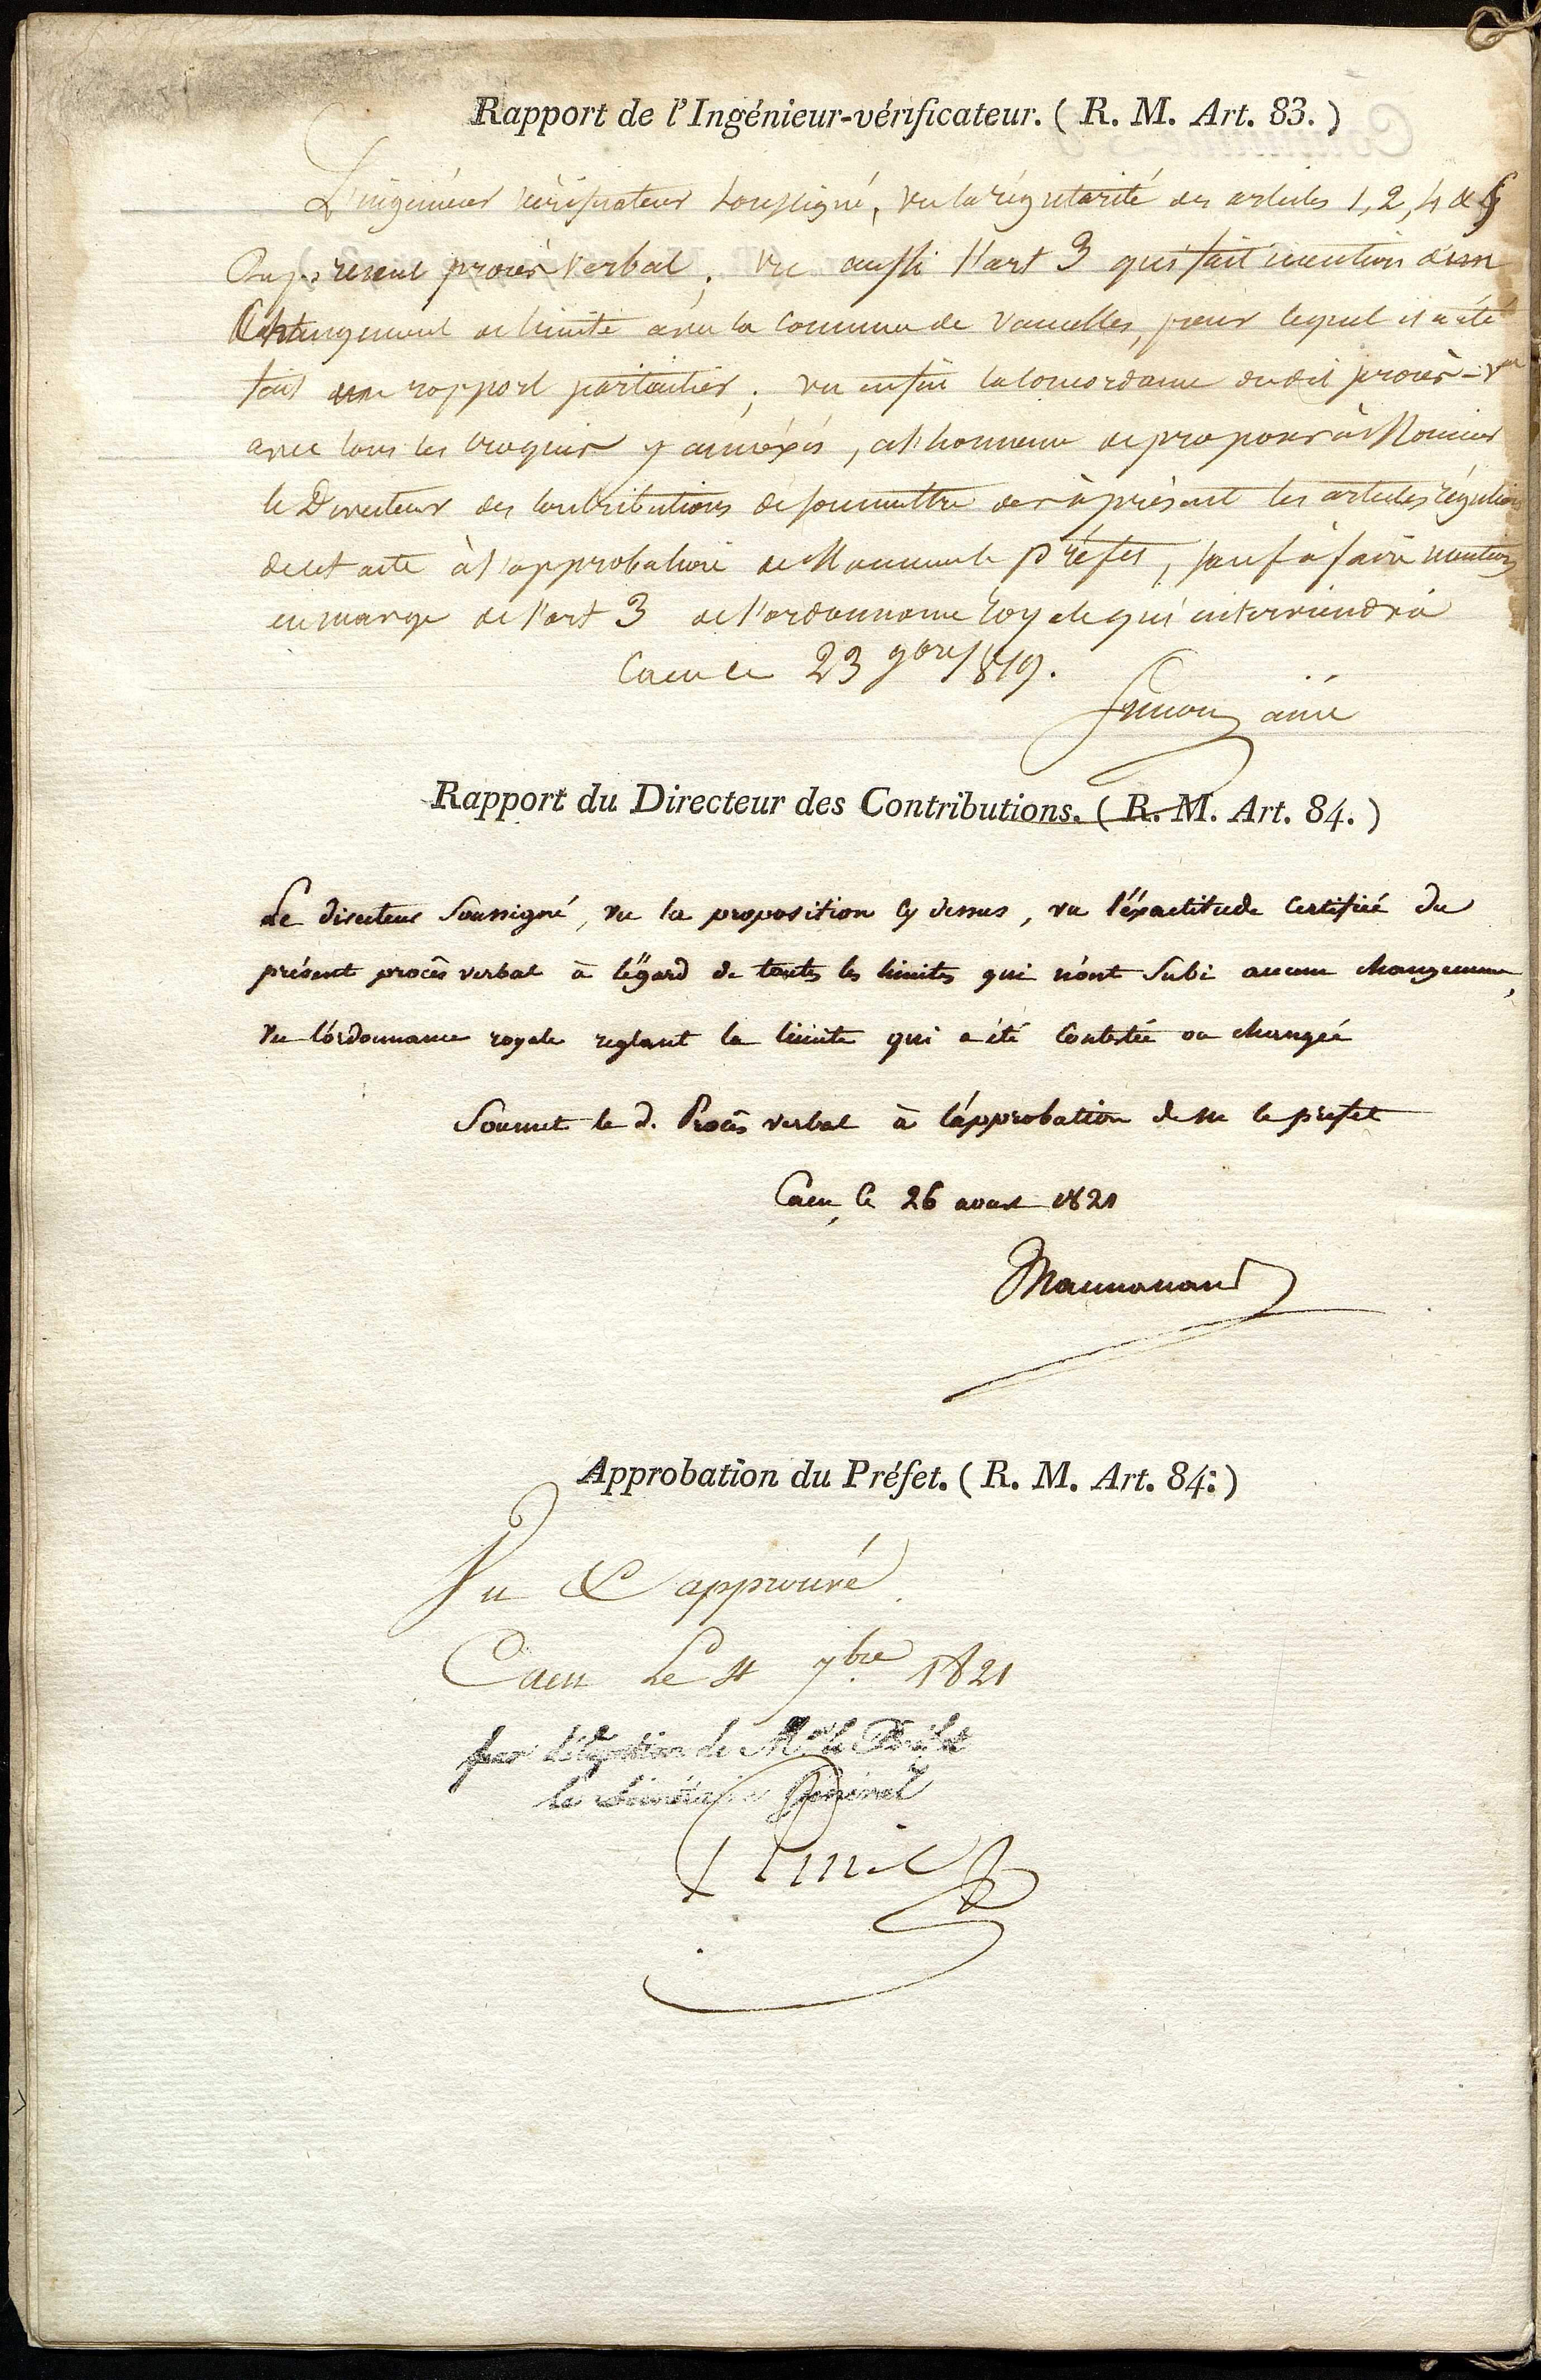 Rapport de l'Ingénieur-vérificateur. ( R. M. Art. 83. )
L'ingénieur vérificateur soussigné, vu la régularité des articles 1, 2, 4 & 5
Du présent procès verbal ; vu aussi l'art 3 qui fait mention d'un
Changement de limite avec la commune de Vaucelles, pour lequel il a été
fait un rapport particulier ; vu enfin la concordance dudit procès-val
avec tous les croquis y annéxés, a l'honneur de proposer à Monsieur
le Directeur des Contributions de soumettre dès à présent les articles réguliers
de cet acte à l'approbation de Monsieur le Préfet, sauf à faire mention
en marge de l'art 3 de l'ordonnance royale qui interviendra
Caen le 23 9bre 1819.
Simon ainé
Rapport du Directeur des Contributions. ( R. M. Art. 84. )
Le directeur Soussigné, vu la proposition cy dessus, vu l'éxactitude certifiée du
présent procès verbal à l'égard de toutes les limites qui n'ont subi aucun changement,
vu l'ordonnance royale reglant la limite qui a été contestée ou changée
Soumet le d. Procès verbal à l'approbation de M le prefet
Caen, le 26 aoust 1821
Approbation du Préfet. ( R. M. Art. 84. )
Vu & approuvé.
Caen Le 4 7bre 1821
par délégation de Mr. le Préfet
le Secrétaire Général